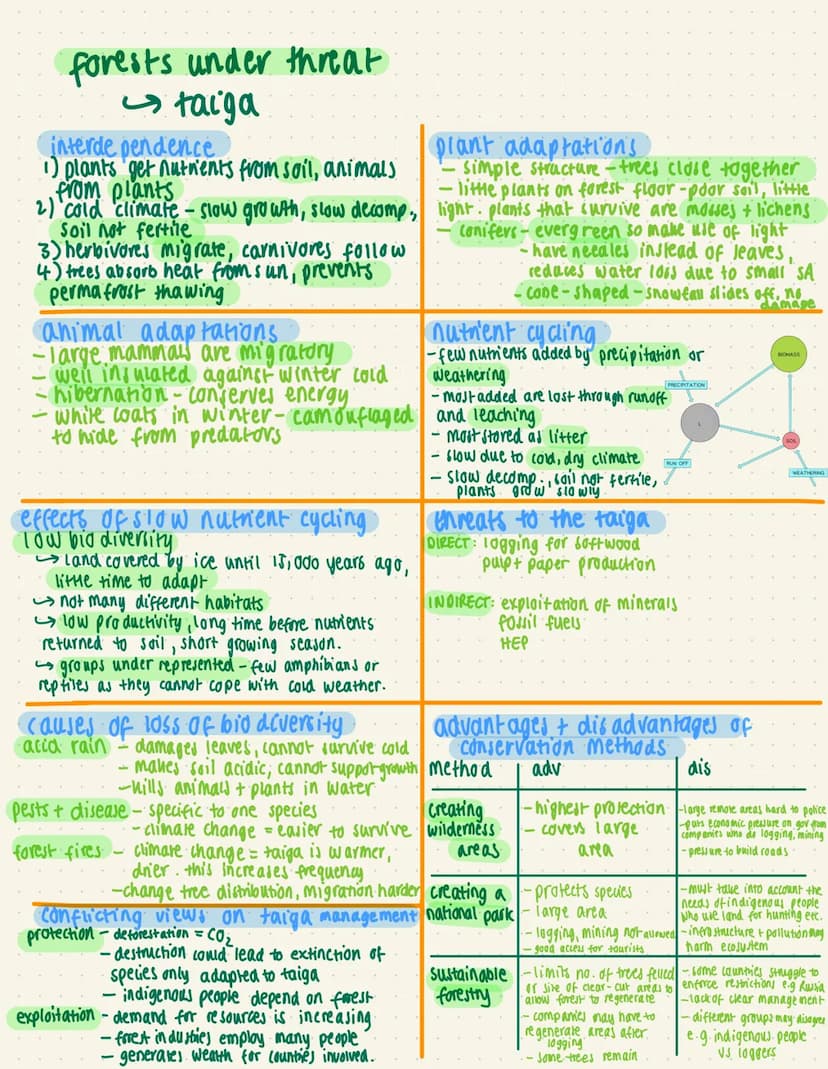 forests under threat
↳ taiga
interdependence
1) plants get nutrients from soil, animals
from plants
2) cold climate - slow growth, slow decomp.,
soil not fertile
3) herbivores migrate, carnivores follow
4) trees absorb heat from sun, prevents
permafrost thawing
plant adaptations
- simple structure - trees close together
- little plants on forest floor - poor soil, little
light. plants that survive are mosses + lichens
- conifers - evergreen so make use of light
- have needles instead of leaves,
reduces water loss due to small SA
- cone-shaped - snowfall slides off, no
damage
animal adaptations
- large mammals are migratory
- well insulated against winter cold
- hibernation - conserves energy
- white coats in winter - camouflaged
to hide from predators
nutrient cycling
- few nutrients added by precipitation or
weathering
- most added are lost through runoff
and leaching
- most stored as litter
- slow due to cold, dry climate
- slow decomp., soil not fertile,
plants grow slowly
BIOMASS
PRECIPITATION
L
SOIL
RUN OFF
WEATHERING
effects of slow nutrient cycling
low biodiversity
↳ land covered by ice until 15,000 years ago,
little time to adapt
↳ not many different habitats
↳ low productivity, long time before nutrients
returned to soil, short growing season.
↳ groups under represented - few amphibians or
reptiles as they cannot cope with cold weather.
threats to the taiga
DIRECT: logging for softwood
pulp + paper production
INDIRECT: exploitation of minerals
fossil fuels
HEP
causes of loss of biodiversity
acid rain - damages leaves, cannot survive cold
- makes soil acidic, cannot support growth
- kills animals + plants in water
pests + disease - specific to one species
- climate change = easier to survive
forest fires - climate change = taiga is warmer,
drier. this increases frequency
- change tree distribution, migration harder
conflicting views on taiga management
protection - deforestation = CO2
- destruction could lead to extinction of
species only adapted to taiga
- indigenous people depend on forest
exploitation - demand for resources is increasing
- forest industries employ many people
- generates wealth for counties involved.
advantages + disadvantages of
conservation methods
method adv dis
creating
wilderness
areas
- highest protection
- covers large
area
- large remote areas hard to police
- puts economic pressure on gov from
companies who do logging, mining
- pressure to build roads
creating a
national park
- protects species
- large area
- logging, mining not allowed
- good access for tourists
- must take into account the
needs of indigenous people
who use land for hunting etc.
- infrastructure + pollution may
harm ecosystem
sustainable
forestry
- limits no. of trees felled
or size of clear-cut areas to
allow forest to regenerate
- companies may have to
regenerate areas after
logging
- some trees remain
- some countries struggle to
enforce restrictions e.g Russia
- lack of clear management
- different groups may disagree
e.g. indigenous people
vs loggers